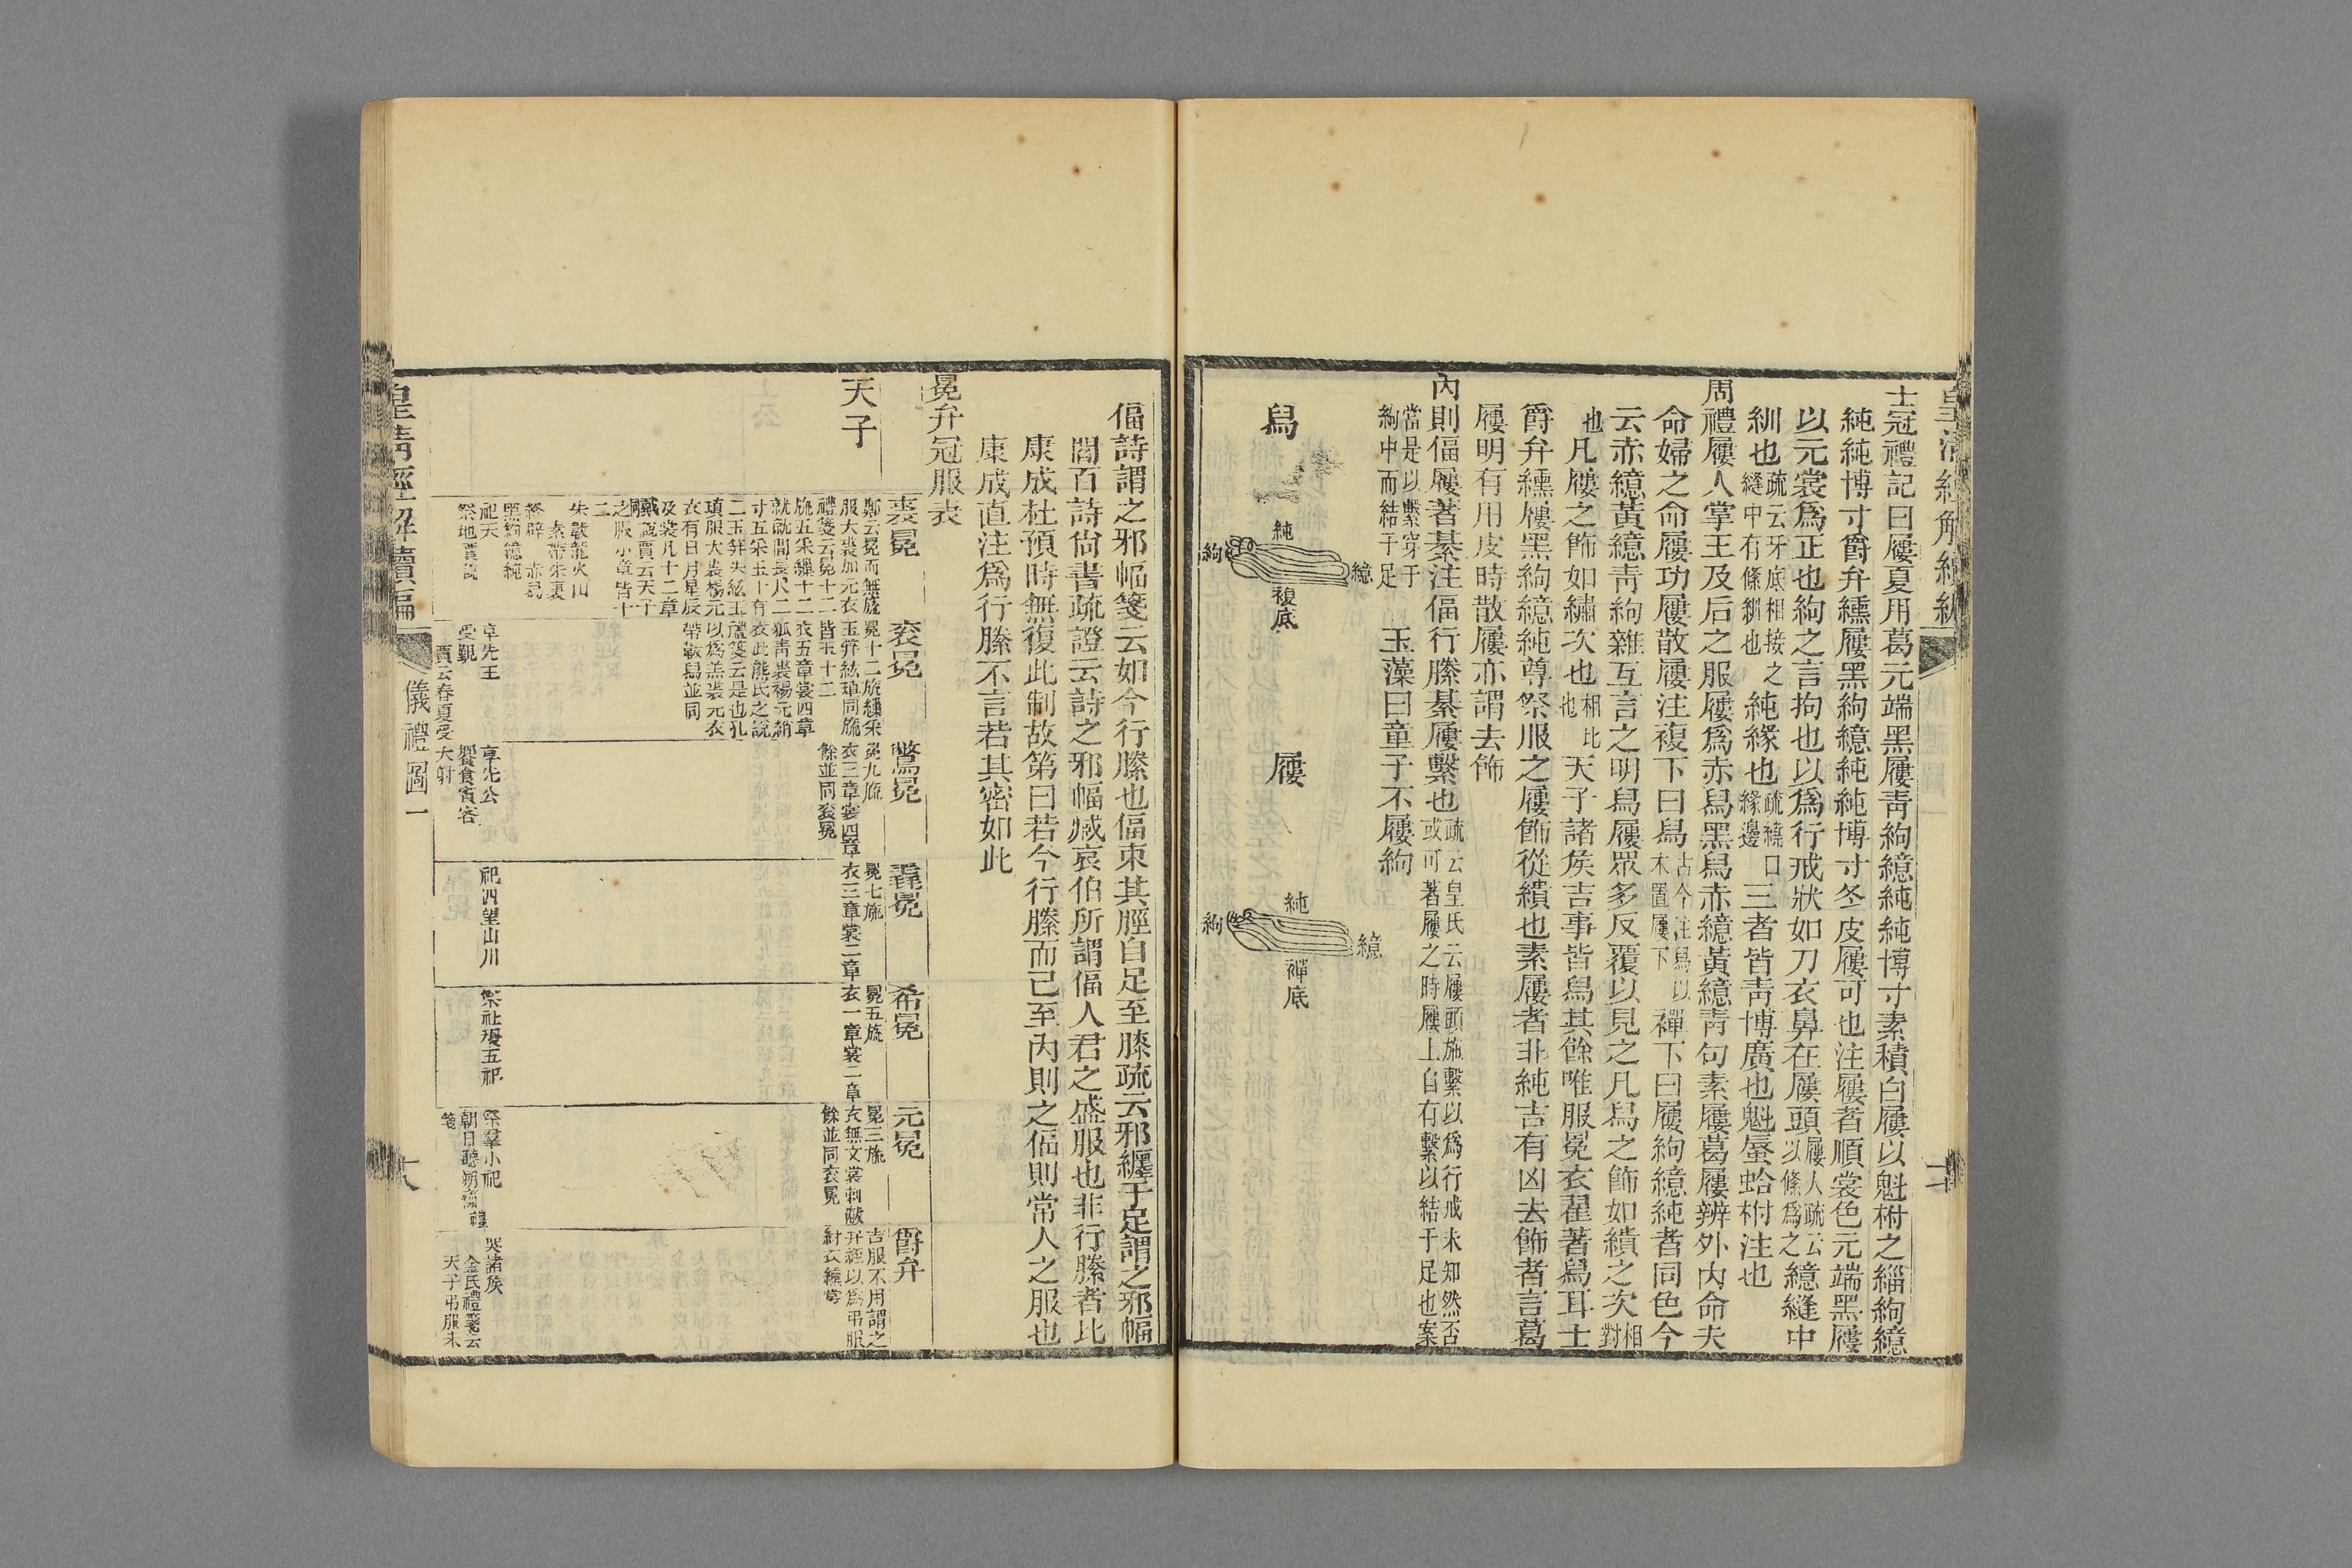 士冠禮記曰屨夏用葛元端黑屨青絇繶純純博寸素積白屨以魁柎之緇絇繶
純純博寸爵弁纁屨黑絇繶純純博寸冬皮屨可也注屨者順裳色元端黑屨
以元裳爲正也絇之言拘也以爲行戒狀如刀衣鼻在屨頭屨人疏云以絛爲之繶縫中
紃也疏云牙底相接之縫中有絛紃也純緣也疏繞口緣邊三者皆青博廣也魁蜃蛤柎注也
周禮屨人掌王及后之服屨爲赤舄黑舄赤繶黃繶青句素屨葛屨辨外內命夫
命婦之命屨功屨散屨注複下曰舄古今注舄以木置屨下禪下曰屨絇繶純者同色今
云赤繶黃繶青絇雜互言之明舄屨眾多反覆以見之凡舄之飾如繢之次相對
也凡屨之飾如繡次也相比也天子諸矦吉事皆舄其餘唯服冕衣翟著舄耳士
爵弁纁屨黑絇繶純尊祭服之屨飾從繢也素屨者非純吉有凶去飾者言葛
屨明有用皮時散屨亦謂去飾
內則偪屨著綦注偪行縢綦屨繫也疏云皇氏云屨頭施繫以爲行戒未知然否或可著屨之時屨上自有繫以結于足也案
當是以繫穿于絇中而結于足 玉藻曰童子不屨絇
舄
純
絇
繶
複底
屨
純
絇
繶
禪底
偪詩謂之邪幅箋云如今行縢也偪束其脛自足至膝疏云邪纏于足謂之邪幅
閻百詩尙書疏證云詩之邪幅臧哀伯所謂偪人君之盛服也非行縢者比
康成杜預時無復此制故第曰若今行縢而已至內則之偪則常人之服也
康成直注爲行縢不言若其密如此
冕弁冠服表
天子
裘冕
鄭云冕而無旒
服大裘加元衣
禮箋云冕十二
旒五采繅十二
就就間長尺二
寸五采玉十有
二玉笄朱紘玉
瑱服大裘裼元
衣有日月星辰
及裳凡十二章
之服小章皆十
二
朱韍龍火山
素帶朱裏
終辟 赤舄
黑絇繶純
祀天
祭地賈說
袞冕
冕十二旒繅采
玉笄紘瑱同旒
皆玉十二
衣五章裳四章
狐青裘裼元綃
衣此熊氏之說
禮箋云是也孔
以爲羔裘元衣
帶韍舄並同
享先王
受覲
賈云春夏受
鷩冕
冕九旒
衣三章裳四章
餘並同袞冕
享先公
饗食賓客
大射
毳冕
冕七旒
衣三章裳二章
祀四望山川
希冕
冕五旒
衣一章裳二章
祭社稷五祀
元冕
冕三旒
衣無文裳刺黻
餘並同袞冕
祭羣小祀
朝日聽朔齋禮
箋
爵弁
吉服不用謂之
弁絰以爲弔服
紂衣纁裳
哭諸侯
金氏禮箋云
天子弔服未
皇清經解續編
儀禮圖一